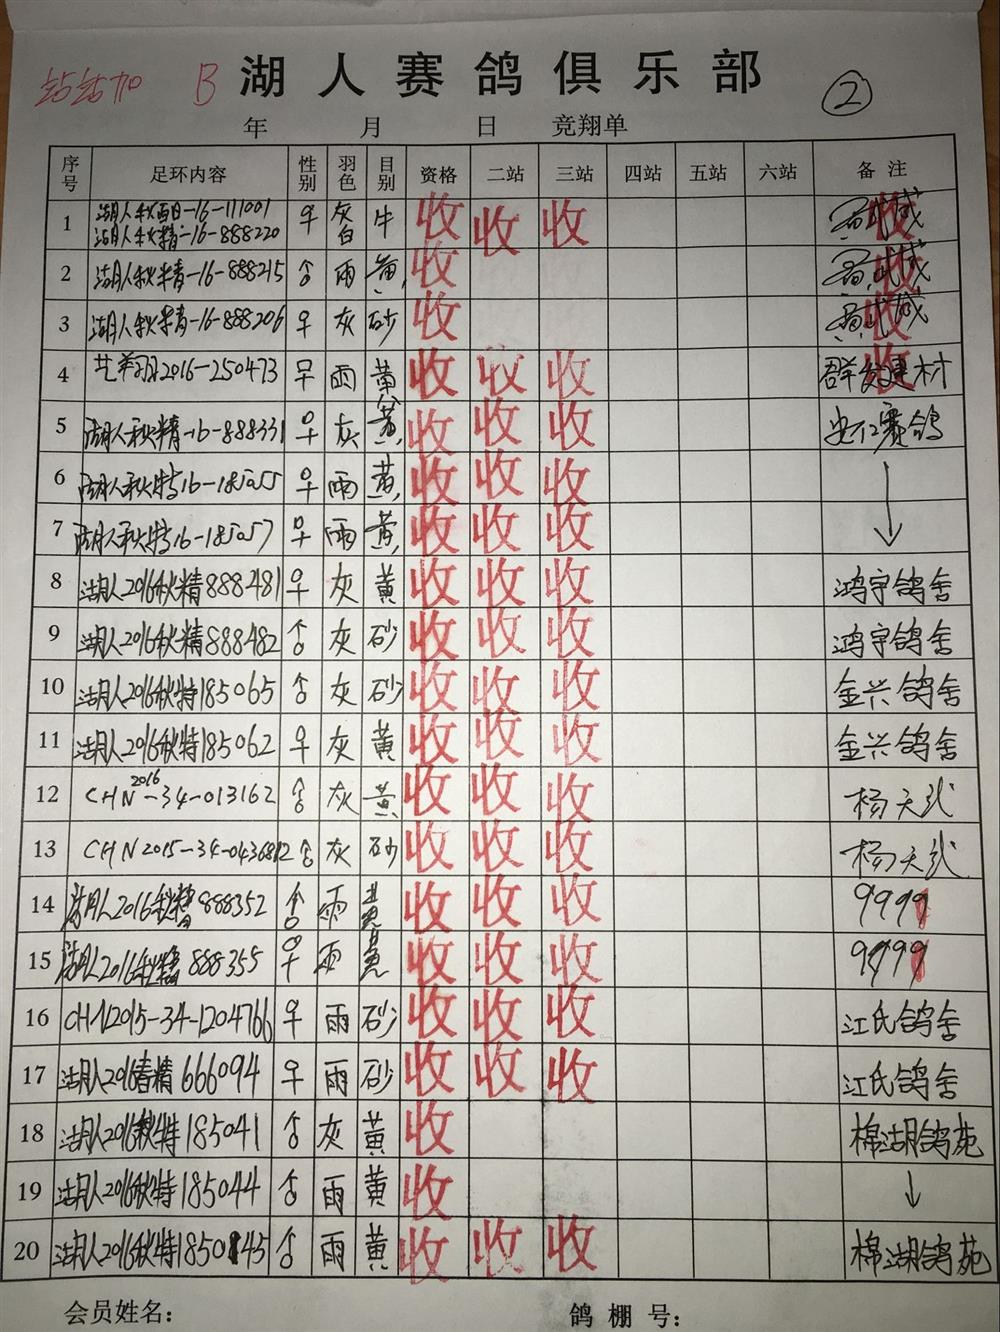 站站加 B 湖人赛鸽俱乐部 ②
年 月 日 竞翔单
序号 足环内容 性别 羽色 目别 资格 二站 三站 四站 五站 六站 备注
1 湖人秋百日-16-111001 ♀ 灰白 牛 收 收 收 收
湖人秋精-16-888220
2 湖人秋精-16-888215 雨 黄 收 收
3 湖人秋精-16-888206 ♀ 灰 砂 收 收
4 2016-250473 ♀ 雨 黄 收 收 收 群发建材 收
5 湖人秋精-16-888331 ♀ 灰 黄 收 收 收 赛鸽
6 湖人秋特16-185055 ♀ 雨 黄 收 收 收 ↓
7 湖人秋特16-185057 ♀ 雨 黄 收 收 收
8 湖人2016秋精888481 ♀ 灰 黄 收 收 收 鸿宇鸽舍
9 湖人2016秋精888482 ♂ 灰 砂 收 收 收 鸿宇鸽舍
10 湖人2016秋特185065 ♂ 灰 砂 收 收 收 金兴鸽舍
11 湖人2016秋特185062 ♀ 灰 黄 收 收 收 金兴鸽舍
12 CHN2016-34-013162 ♂ 灰 黄 收 收 收 杨天
13 CHN2015-34-0436812 ♂ 灰 砂 收 收 收 杨天
14 湖人2016秋精888352 ♂ 雨 黄 收 收 收 9999
15 湖人2016秋精888355 ♀ 雨 黄 收 收 收 9999
16 CHN2015-34-1204766 ♀ 雨 砂 收 收 收 江氏鸽舍
17 湖人2016春精666094 ♀ 雨 砂 收 收 收 江氏鸽舍
18 湖人2016秋特185041 ♂ 灰 黄 收 棉湖鸽苑
19 湖人2016秋特185044 ♂ 雨 黄 收 ↓
20 湖人2016秋特185045 ♂ 雨 黄 收 收 收 棉湖鸽苑
会员姓名： 鸽棚号：